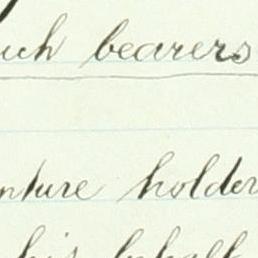 uch bearers
nture holder
his behalf